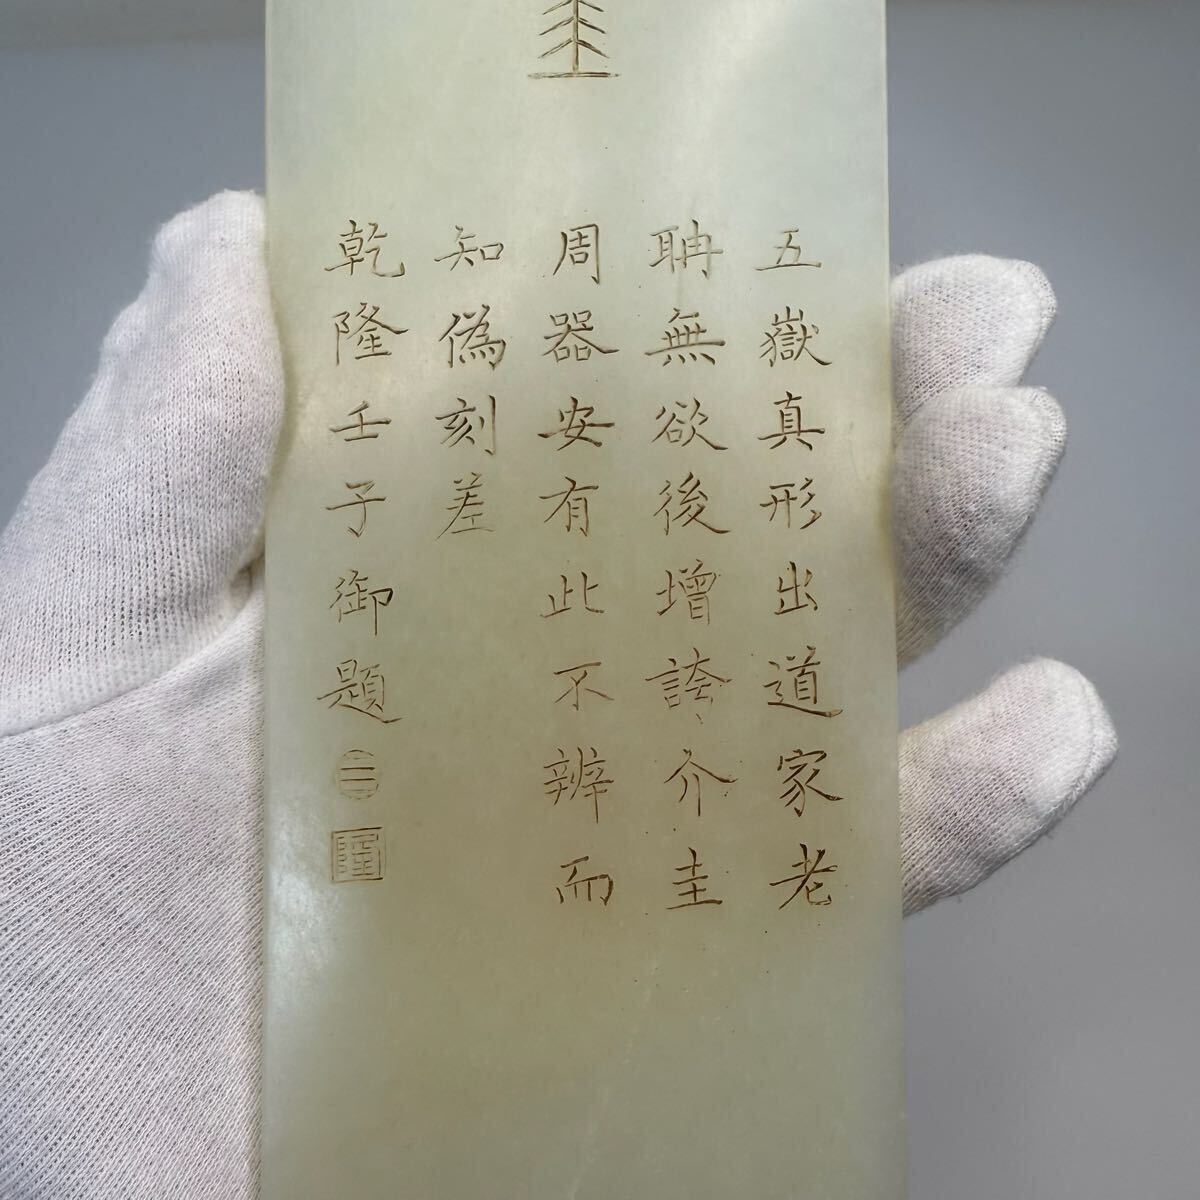 五嶽真形出道家老
聃無欲後增誇介圭
周器安有此不辨而
知偽刻差
乾隆壬子御題
☰
隆